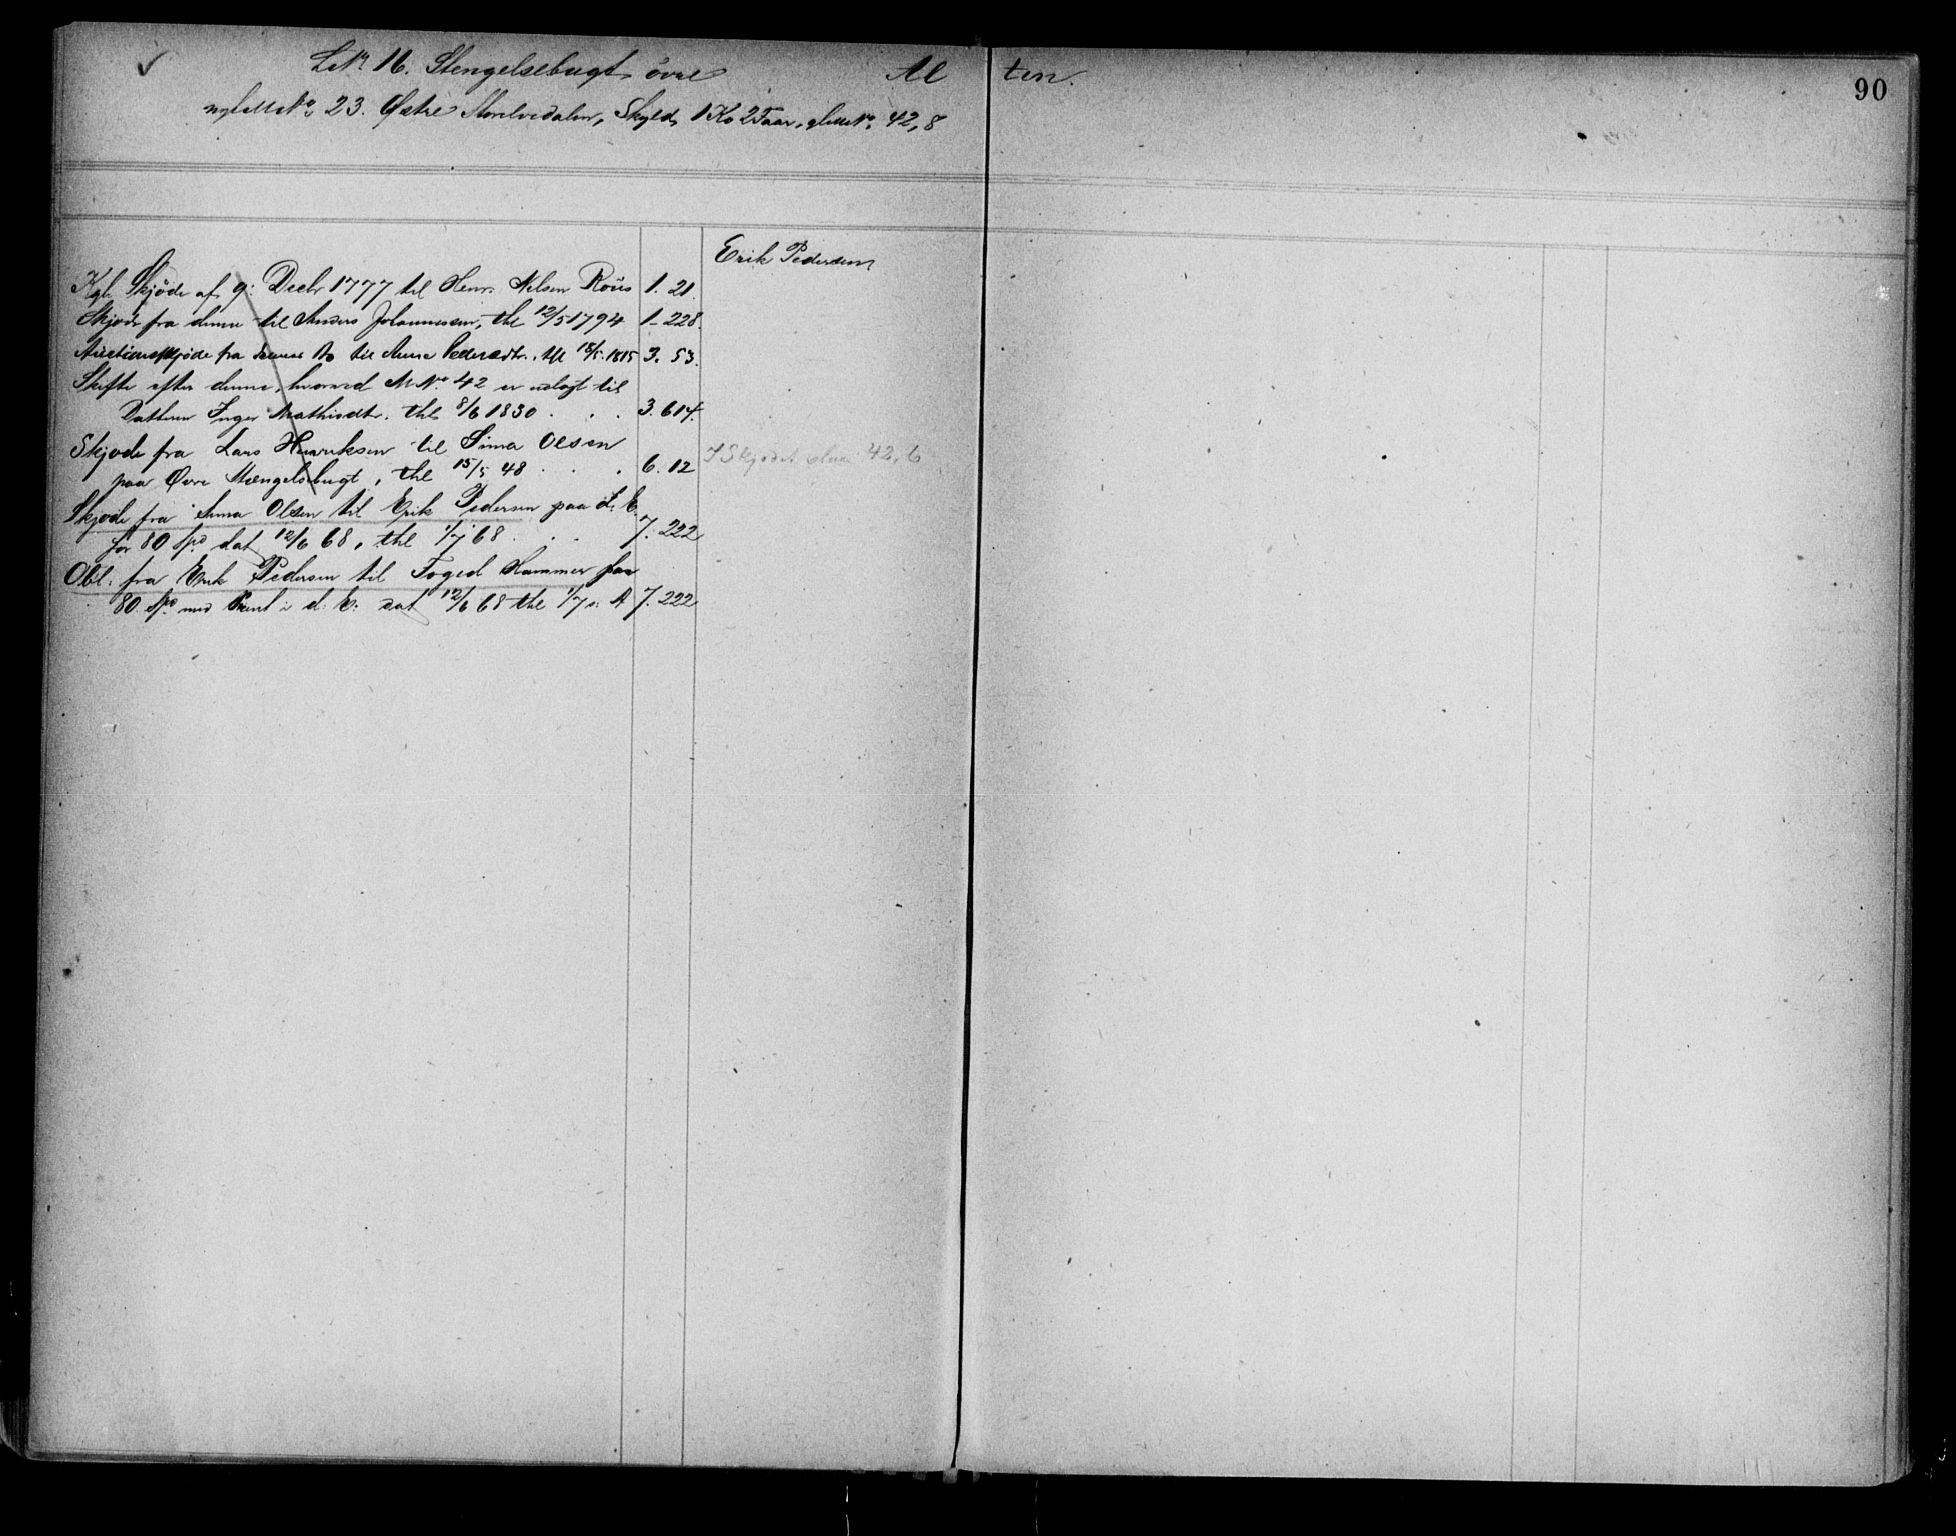 90
L№ 16. Stengelsebugt övre Al ten.
nyt M№ 23. Østre Storelvedalen, Skyld, 1 Ko 2 Faar, gl M№ 42,8
Erik Pedersen
Kgl. Skjöde af 9: Decbr 1777 til Henr. Nelsen Roüs 1. 21.
Skjöde fra denne til Anders Johannessen, thl 12/5 1794 1-228.
Auctionsskjöde fra dennes Bo til Anna Pedersdtr. thl 18/5. 1815 3. 53.
Skifte efter denne, hvorved M.N. 42 er udlagt til
Datteren Inger Mathisdtr. thl 8/6 1830 . . . 3. 614.
Skjöde fra Lars Henriksen til Sima Olsen
paa Övre Stængelsebugt, thl 15/5 48 . . . 6. 12
I Skjödet 42,6
Skjöde fra Anna Olsen til Erik Pedersen paa d: E.
for 80 Spd dat 12/6 68, thl 1/7 68 . . . 7. 222
Obl: fra Erik Pedersen til Foged Hammer paa
80 Spd med Pant i d: E: dat 12/6 68 thl 1/7 s: A 7. 222